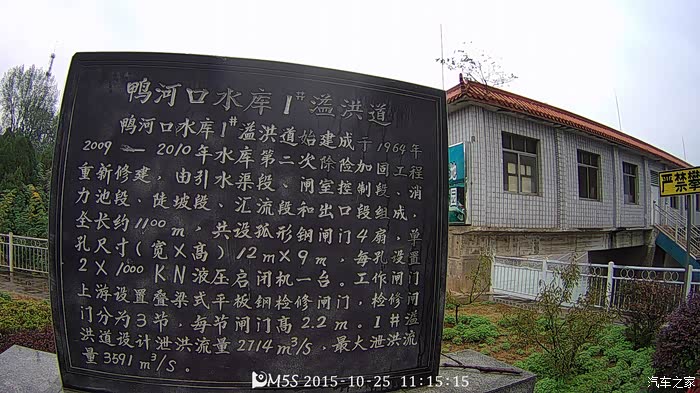 鸭河口水库1#溢洪道
鸭河口水库1#溢洪道始建成于1964年
2009—2010年水库第二次除险加固工程
重新修建，由引水渠段、闸室控制段、消
力池段、陡坡段、汇流段和出口段组成，
全长约1100m，共设弧形钢闸门4扇，单
孔尺寸（宽×高）12m×9m，每孔设置
2×1000KN液压启闭机一台。工作闸门
上游设置叠梁式平板钢检修闸门，检修闸
门分为3节，每节闸门高2.2m。1#溢
洪道设计泄洪流量2714m³/s，最大泄洪流
量3591m³/s。
严禁攀
M5S 2015-10-25 11:15:15
汽车之家